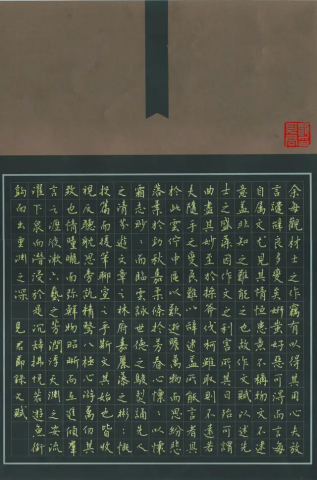 余每觀材士之作竊有以得其用心夫放
言遣辭良多變矣妍蚩好惡可得而言每
自属文尤見其情恒患意不稱物文不逮
意蓋非知之難能之難也故作文賦以述先
士之盛藻因作文之利害所其日殆可謂
曲盡其妙至於操斧伐柯雖取則不遠若
夫隨手之變良難以辭逮蓋所能言者具
於此云佇中區以歎逝瞻萬物而思紛悲
落葉於勁秋嘉柔條於芳春心懔以懷
霜志眇而臨雲詠世德之駿烈誦先人
之清芬遊文章之林府嘉麗藻之彬慨
投篇而援筆聊宣之乎斯文其始也皆收
視反聽耽思旁訊精騖八極心游萬仞其
致也情曈曨而弥鮮物昭晰而互進傾羣
言之瀝液漱六藝之芳潤浮天淵之安流
濯下泉而潛浸於是沉辭怫悅若遊魚銜
鉤而出重淵之深 見君節錄文賦